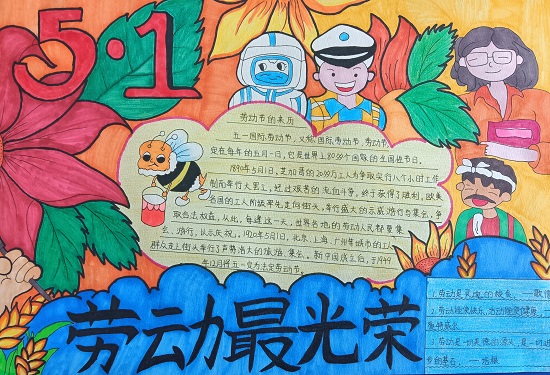 5·1
劳动节的来历
五一国际劳动节，又称国际劳动节、劳动节，
定在每年的五月一日。它是世界上80多个国家的全国性节日。
1890年5月1日，芝加哥的20多万工人为争取实行八个小时工作
制而举行大罢工，经过艰苦的流血斗争，终于获得了胜利，欧美
各国的工人阶级率先走向街头，举行盛大的示威游行与集会，争
取合法权益。从此，每逢这一天，世界各地的劳动人民都要集
会、游行，以示庆祝。1920年5月1日，北京、上海、广州等城市的工人
群众走上街头举行了声势浩大的游行、集会。新中国成立后，于1949
年12月将五一定为法定劳动节。
劳动最光荣
1、劳动是灵魂的
2、劳动使
3、劳动是一切 是一切进
步的基石。——培根